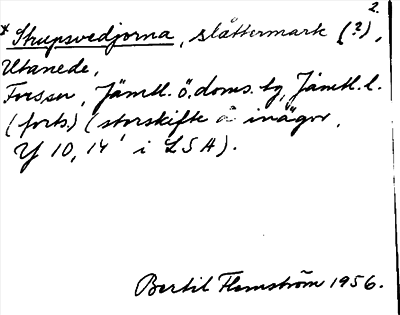 2.
* Strupsvedjorna, slåttermark (?),
Utanede,
Forssn, Jämtl. ö. doms. tg, Jämtl. l.
(forts.) (storskifte å inägor,
Y 10, 14' i LSA).
Bertil Flemström 1956.